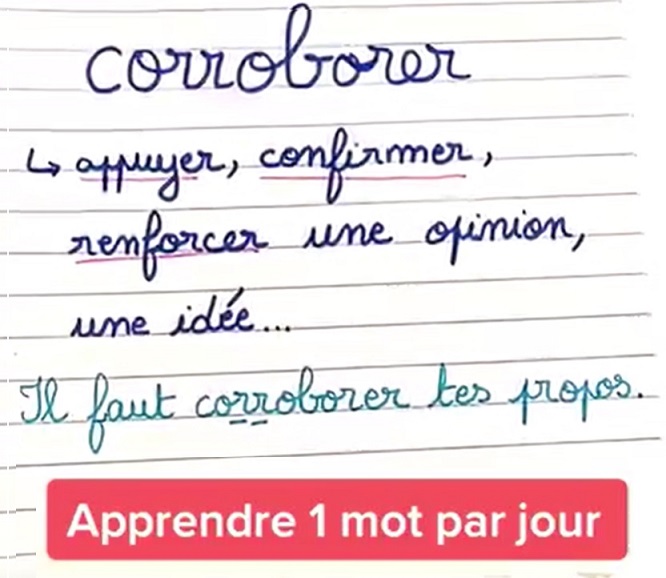 corroborer
↳ appuyer, confirmer,
renforcer une opinion,
une idée...
Il faut corroborer tes propos.
Apprendre 1 mot par jour